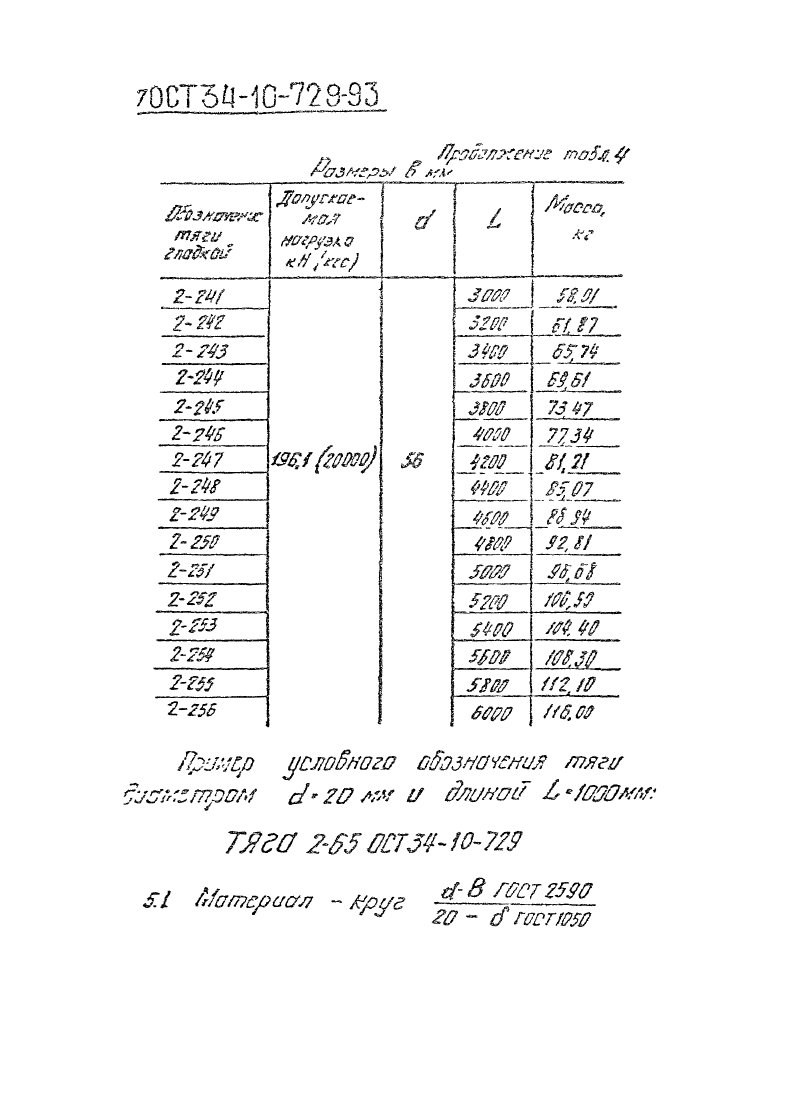 ОСТ 34-10-729-93
Продолжение табл. 4
Размеры в мм
Обозначение тяги гладкой | Допускаемая нагрузка кН (кгс) | d | L | Масса, кг
2-241 | 196,1 (20000) | 56 | 3000 | 58,01
2-242 | 3200 | 61,87
2-243 | 3400 | 65,74
2-244 | 3600 | 69,61
2-245 | 3800 | 73,47
2-246 | 4000 | 77,34
2-247 | 4200 | 81,21
2-248 | 4400 | 85,07
2-249 | 4600 | 88,94
2-250 | 4800 | 92,81
2-251 | 5000 | 96,68
2-252 | 5200 | 100,50
2-253 | 5400 | 104,40
2-254 | 5600 | 108,30
2-255 | 5800 | 112,10
2-256 | 6000 | 116,00
Пример условного обозначения тяги
диаметром d=20 мм и длиной L=1000мм:
ТЯГА 2-65 ОСТ 34-10-729
5.1 Материал - круг d-В ГОСТ 2590
20 - б ГОСТ 1050